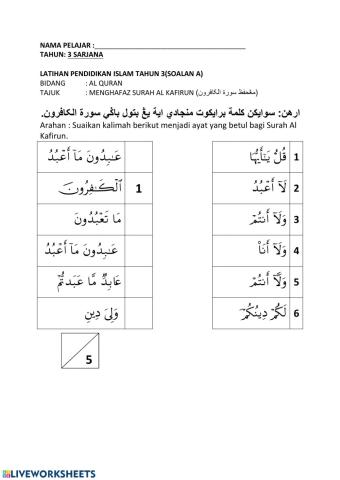 NAMA PELAJAR :
TAHUN: 3 SARJANA
LATIHAN PENDIDIKAN ISLAM TAHUN 3(SOALAN A)
BIDANG : AL QURAN
TAJUK : MENGHAFAZ SURAH AL KAFIRUN (مڠحفظ سورة الكافرون)
ارهن: سوايكن كلمة برايكوت منجادي اية يڠ بتول باڬي سورة الكافرون.
Arahan : Suaikan kalimah berikut menjadi ayat yang betul bagi Surah Al
Kafirun.
1 قُلْ يَـٰٓأَيُّهَا
عَـٰبِدُونَ مَآ أَعْبُدُ
2 لَآ أَعْبُدُ
1 ٱلْكَـٰفِرُونَ
3 وَلَآ أَنتُمْ
مَا تَعْبُدُونَ
4 وَلَآ أَنَا۠
عَـٰبِدُونَ مَآ أَعْبُدُ
5 وَلَآ أَنتُمْ
عَابِدٌ مَّا عَبَدتُّمْ
6 لَكُمْ دِينُكُمْ
وَلِىَ دِينِ
5
LIVEWORKSHEETS